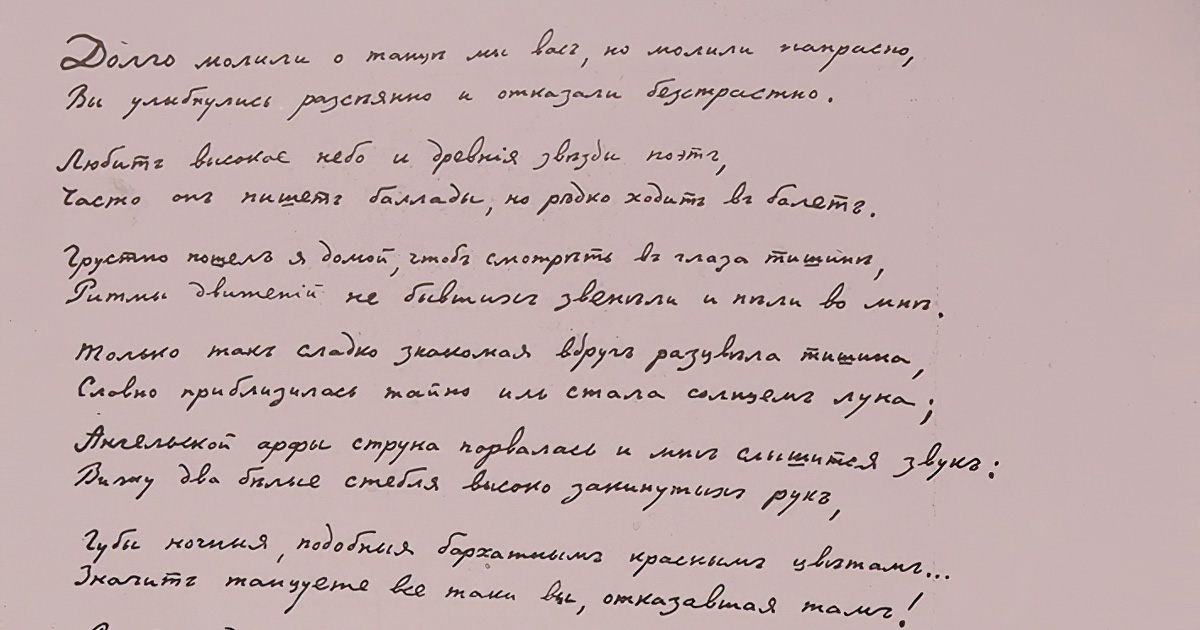 Долго молили о танцѣ мы васъ, но молили напрасно,
Вы улыбнулись разсѣянно и отказали безстрастно.
Любитъ высокое небо и древнія звѣзды поэтъ,
Часто онъ пишетъ баллады, но рѣдко ходитъ въ балетъ.
Грустно пошелъ я домой, чтобъ смотрѣть въ глаза тишинѣ,
Ритмы движеній не бывшихъ звенѣли и пѣли во мнѣ.
Только такъ сладко знакомая вдругъ разцвѣла тишина,
Словно приблизилась тайно иль стала солнцемъ луна;
Ангельской арфы струна порвалась и мнѣ слышится звукъ:
Вижу два бѣлые стебля высоко закинутыхъ рукъ,
Губы ночныя, подобныя бархатнымъ краснымъ цвѣтамъ...
Значитъ танцуете все таки вы, отказавшая тамъ!